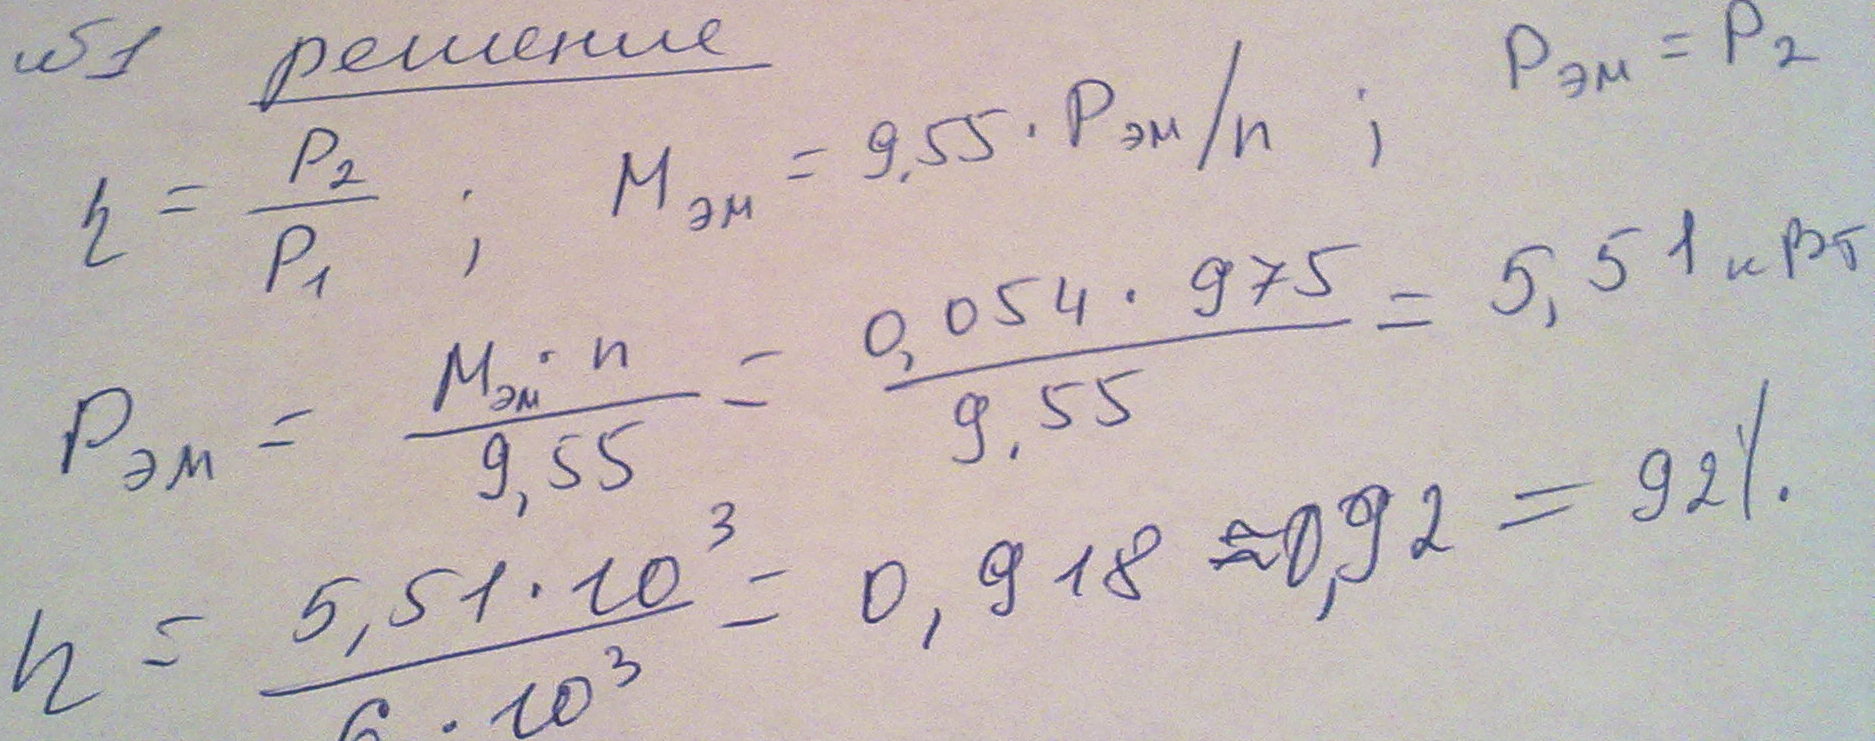 №1 решение
η = P₂/P₁ ; Mэм = 9,55 · Pэм/n ; Pэм = P₂
Pэм = Mэм · n / 9,55 = 0,054 · 975 / 9,55 = 5,51 кВт
η = 5,51 · 10³ / 6 · 10³ = 0,918 ≈ 0,92 = 92%.